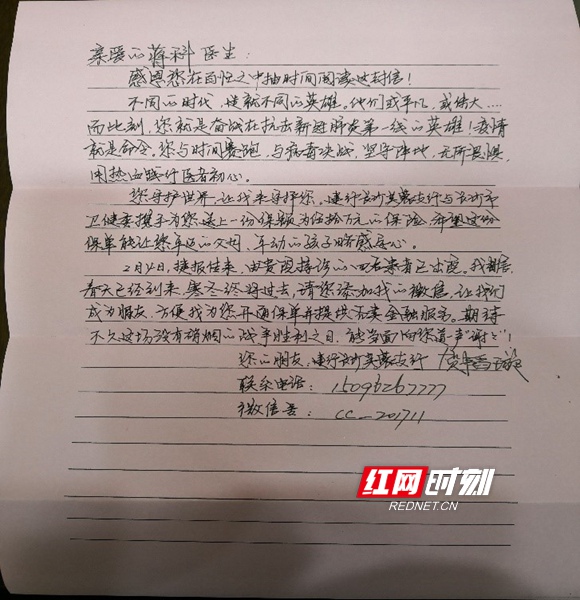 亲爱的蒋科医生：
感恩您在百忙之中抽时间阅读这封信！
不同的时代，造就不同的英雄。他们或平凡，或伟大....
而此刻，您就是奋战在抗击新冠肺炎第一线的英雄！疫情
就是命令。您与时间赛跑，与病毒决战，坚守阵地，无所畏惧，
用热血践行医者初心。
您守护世界，让我来守护您。建行长沙芙蓉支行与长沙市
卫健委携手为您送上一份保额为伍拾万元的保险，希望这份
保单能让您年迈的父母、年幼的孩子略感安心。
2月4日，捷报传来，由贵院接诊的四名患者已出院。我相信，
春天已经到来，寒冬终将过去，请您添加我的微信，让我们
成为朋友，方便我为您开通保单并提供专业金融服务。期待
不久这场没有硝烟的战争胜利之日，能当面向您道一声"谢谢"！
您的朋友，建行长沙芙蓉支行
联系电话：15096267777
微信号：CC_201711
红网时刻
REDNET.CN